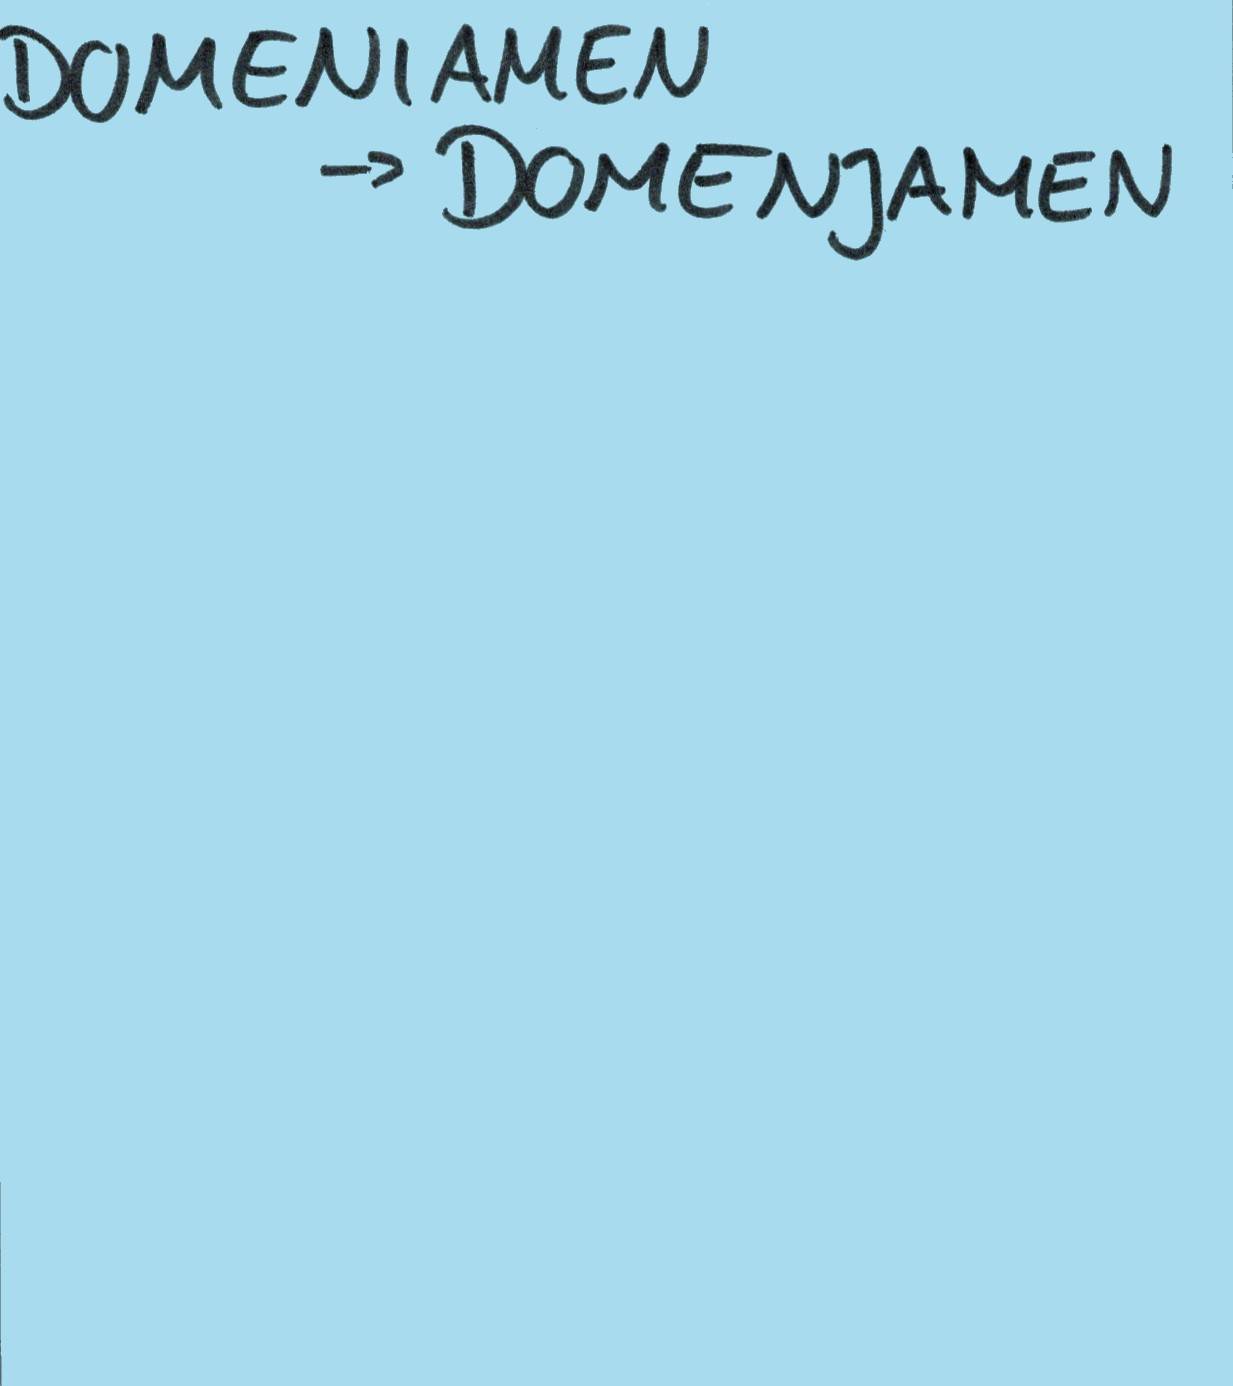 DOMENIAMEN
→ DOMENJAMEN